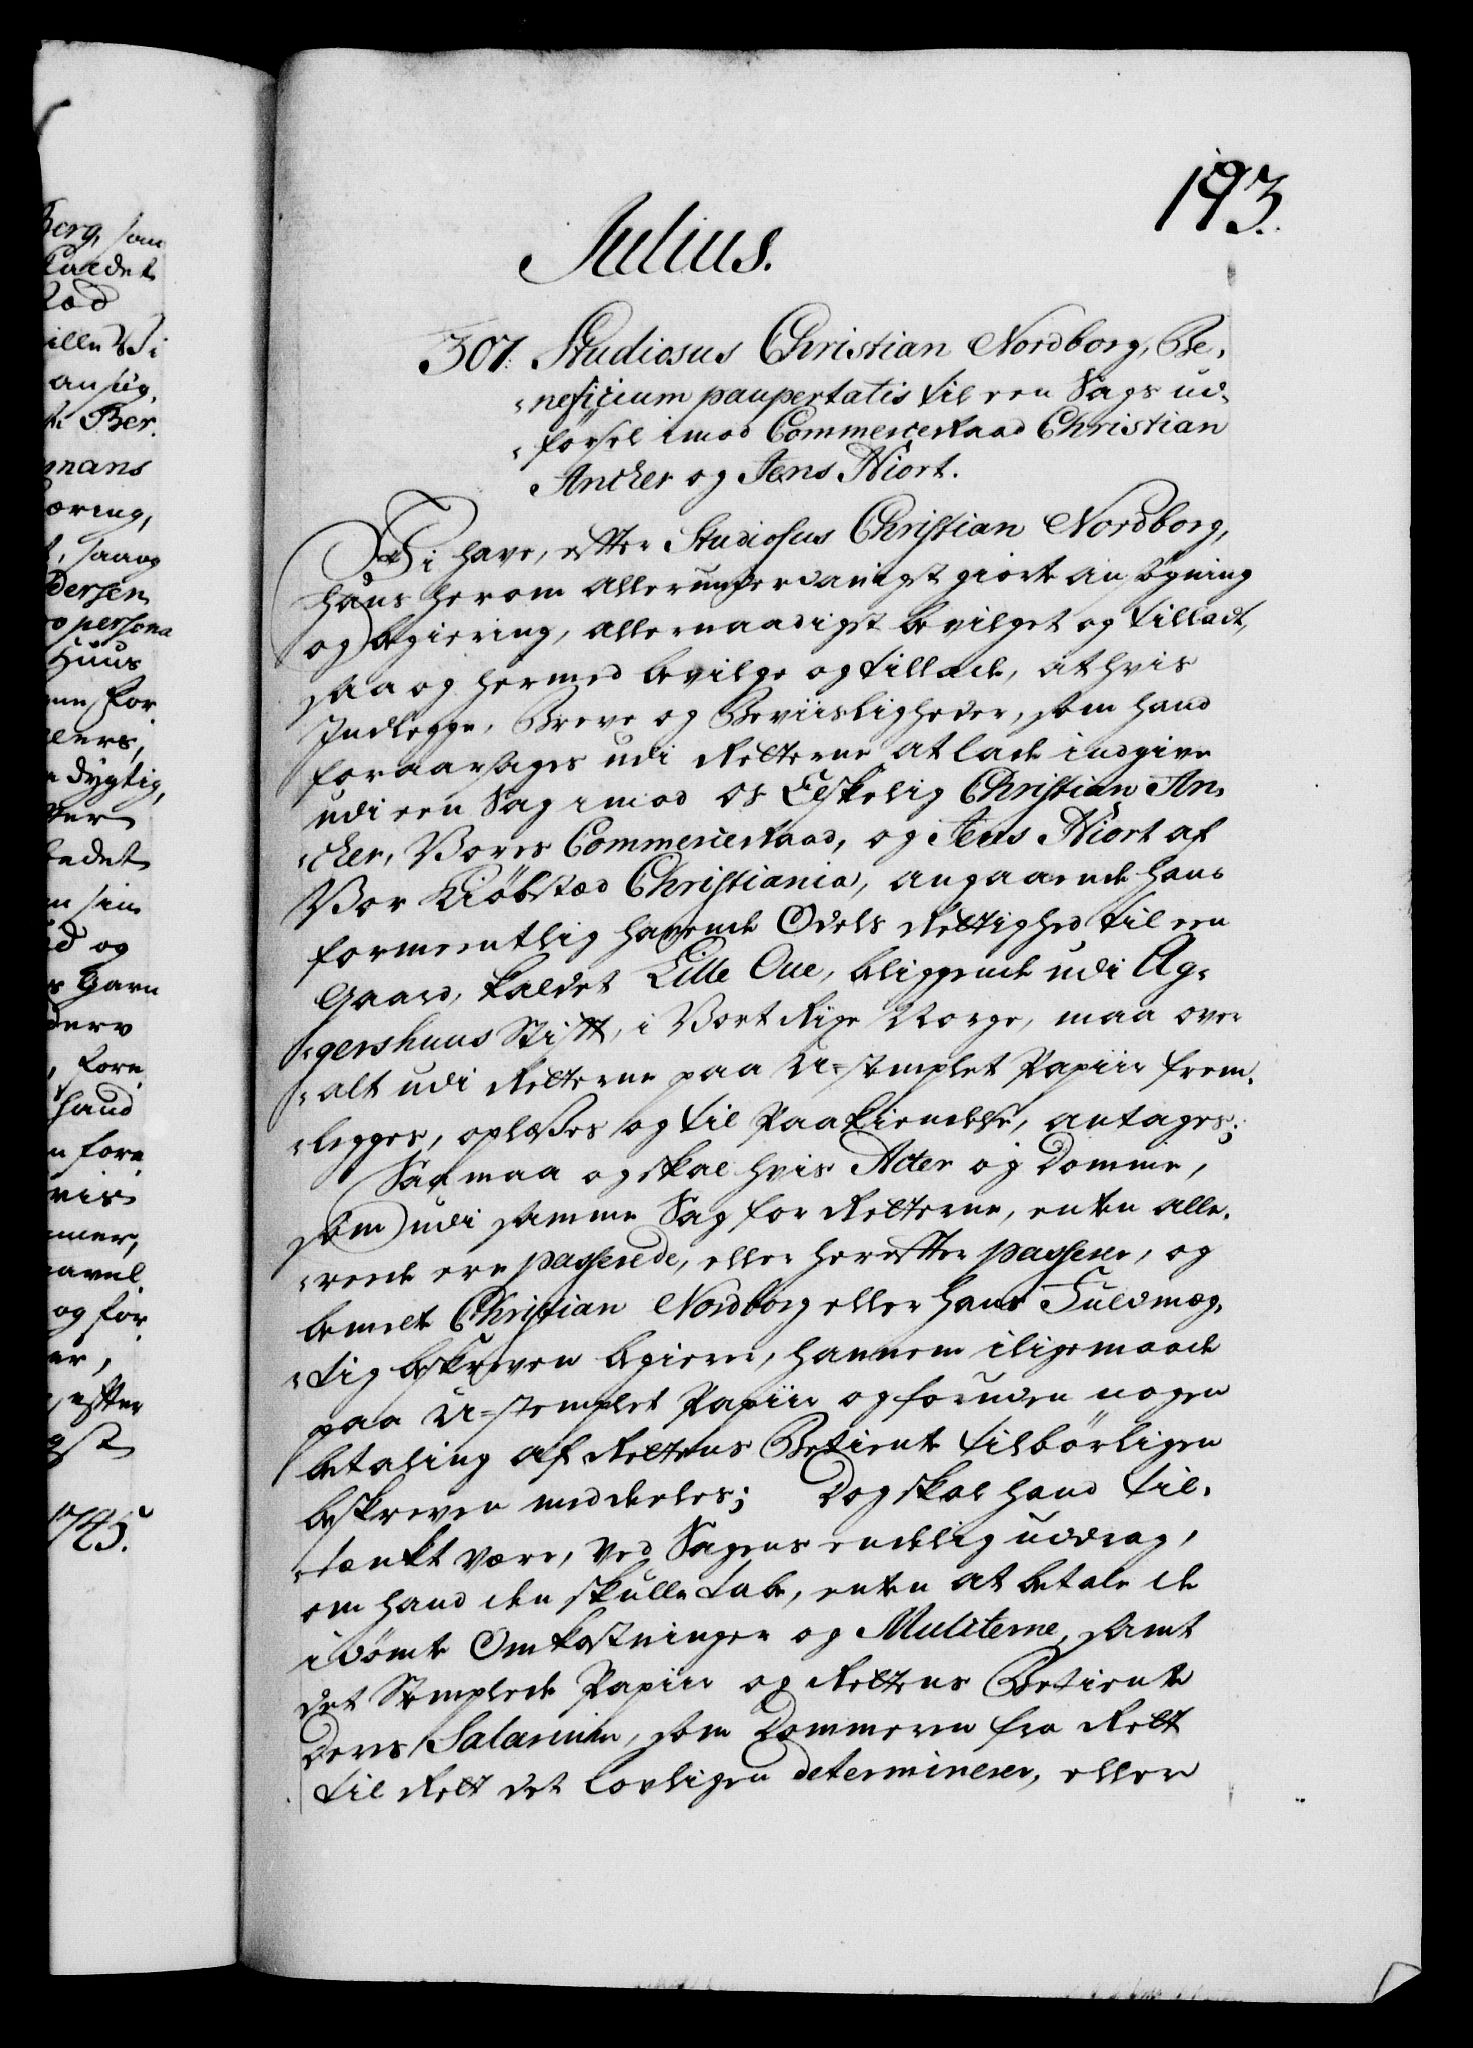 193.
Julius.
307. Studiosus Christian Nordborg, Be-
neficium paupertatis til een Sags ud-
försel imod CommerceRaad Christian
Ancher og Jens Hiort.
Wi have, efter Studiosus Christian Nordborg,
hans herom allerunderdanigst giorte ansögning
og begiering, allernaadigst bevilget og tilladt,
saa og hermed bevilge og tillade, at hvis
Indlegge, Breve og Beviisligheder, som hand
foraarsages udi Retterne at lade indgive
udi een Sag imod Os Elskelig Christian An-
cher, Vores CommerceRaad, og Jens Hiort af
Vor Kiöbstæd Christiania, angaaende hans
formeentlig havende Odels Rettighed til een
Gaard, kaldet Lille Oue, beliggende udi Ag-
gershuus Stift, i Vort Rige Norge, maa over
alt udi Retterne paa U-stemplet Papiir frem-
legges, oplæses og til Paakiendelse, antages;
Saa maa og skal hvis Acter og Domme,
som udi samme Sag for Retterne, enten alle-
rede ere passerede, eller herefter passerer, og
bemelte Christian Nordborg eller hans Fuldmæg-
tig beskreven begierer, hannem iligemaade
paa U-stemplet Papiir og foruden nogen
betaling af Rettens Betiente tilbörligen
beskreven meddeeles; Dog skal hand til-
tænkt være, ved Sagens endelig uddrag,
om hand den skulle tabe, enten at betale de
idömte Omkostninger og Mulcterne, samt
det Stemplede Papiir og Rettens Betiente
Deris Salarium, som Dommeren fra Rett
til Rett det lovligen determinerer, eller
Berg, som
kaldet
ansög.
Ber.
mans
pæring,
saa og
dersen
persona
Huus
dygtig,
ledet
og
Garn
hand
vis
og for
efter
1745.